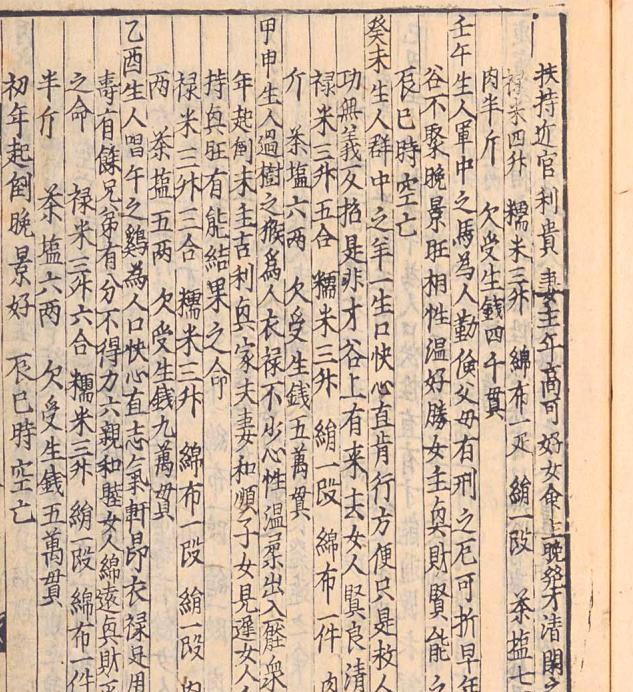 扶持近官利貴妻主年高可好女命主晚發才清閑之
禄米四升 糯米三升 綿布一疋 絹一段 茶塩七
肉半斤 欠受生銭四千貫
壬午生人軍中之馬為人勤儉父母有刑之厄可折早年
谷不聚晚景旺相性温好勝女主奐財賢能之
辰巳時空亡
癸未生人群中之羊一生口快心直肯行方便只是救人
功無義反招是非才谷上有来去女人賢良清
禄米三升五合 糯米三升 絹一段 綿布一件 肉
介 茶塩六两 欠受生銭五萬貫
甲申生人過樹之猴為人衣禄不少心性温柔出入壓衆
年起倒末主吉利奐家夫妻和順子女見遲女人
持奐旺有能結果之命
禄米三升三合 糯米三升 綿布一段 絹一段 肉
两 茶塩五两 欠受生銭九萬貫
乙酉生人唱午之鷄為人口快心直志氣軒昂衣禄足用
壽有餘兄弟有分不得力六親和睦女人綿遠奐財
之命 禄米三升六合 糯米三升 絹一段 綿布一件
半斤 茶塩六两 欠受生銭五萬貫
初年起倒晚景好 辰巳時空亡